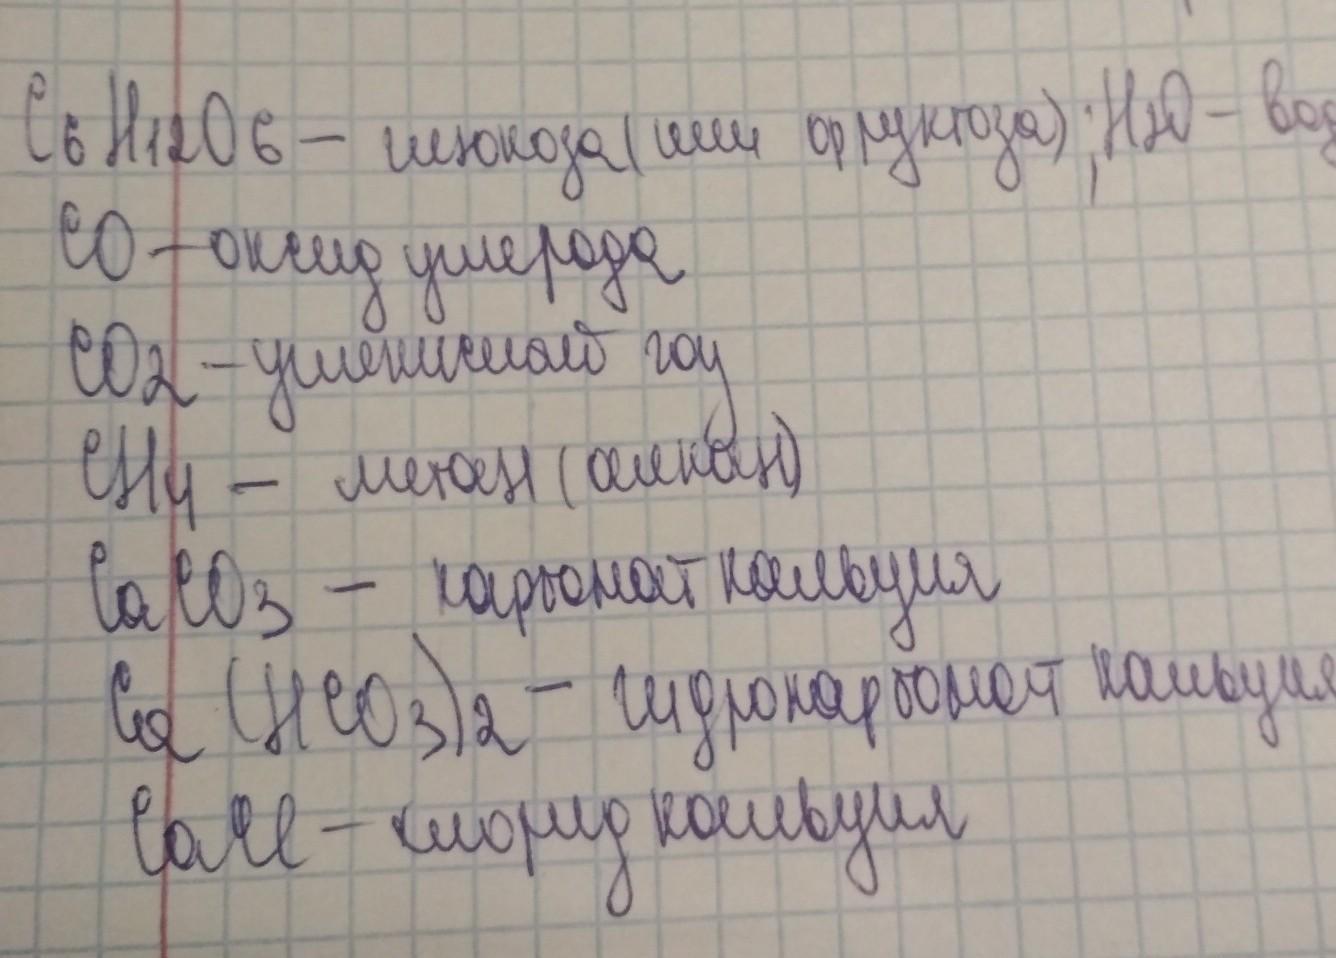 C6H12O6 – глюкоза (или фруктоза); H2O – вод
CO – оксид углерода
CO2 – углекислый газ
CH4 – метан (алкан)
CaCO3 – карбонат кальция
Ca(HCO3)2 – гидрокарбонат кальция
CaCl – хлорид кальция